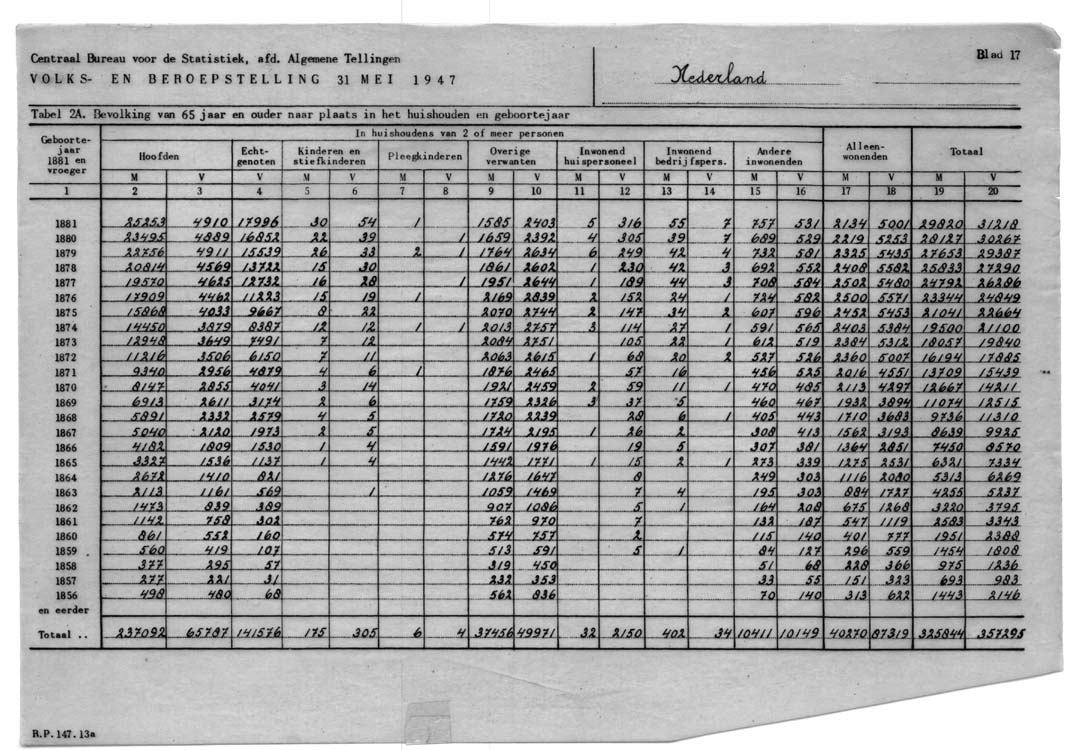 Centraal Bureau voor de Statistiek, afd. Algemene Tellingen
Blad 17
VOLKS- EN BEROEPSTELLING 31 MEI 1947
Nederland
Tabel 2A. Bevolking van 65 jaar en ouder naar plaats in het huishouden en geboortejaar
Geboorte-jaar 1881 en vroeger | In huishoudens van 2 of meer personen | Alleen-wonenden | Totaal
Hoofden | Echt-genoten | Kinderen en stiefkinderen | Pleegkinderen | Overige verwanten | Inwonend huispersoneel | Inwonend bedrijfspers. | Andere inwonenden
M V V M V M V M V M V M V M V M V M V
1 2 3 4 5 6 7 8 9 10 11 12 13 14 15 16 17 18 19 20
1881 25253 4910 17996 30 54 1 1585 2403 5 316 55 7 757 531 2134 5001 29820 31218
1880 23495 4889 16852 22 39 1 1659 2392 4 305 39 7 689 529 2219 5253 28127 30267
1879 22756 4911 15539 26 33 2 1 1764 2634 6 249 42 4 732 581 2325 5435 27653 29387
1878 20814 4569 13722 15 30 1861 2602 1 230 42 3 692 552 2408 5582 25833 27290
1877 19570 4625 12732 16 28 1 1951 2644 1 189 44 3 708 584 2502 5480 24792 26286
1876 17909 4462 11223 15 19 1 2169 2839 2 152 24 1 724 582 2500 5571 23344 24849
1875 15868 4033 9667 8 22 2070 2744 2 147 34 2 607 596 2452 5453 21041 22664
1874 14450 3879 8387 12 12 1 1 2013 2757 3 114 27 1 591 565 2403 5384 19500 21100
1873 12948 3649 7491 7 12 2084 2751 105 22 1 612 519 2384 5312 18057 19840
1872 11216 3506 6150 7 11 2063 2615 1 68 20 2 527 526 2360 5007 16194 17885
1871 9340 2956 4879 4 6 1 1876 2465 57 16 456 525 2016 4551 13709 15439
1870 8147 2855 4041 3 14 1921 2459 2 59 11 1 470 485 2113 4297 12667 14211
1869 6913 2611 3174 2 6 1759 2326 3 37 5 460 467 1932 3894 11074 12515
1868 5891 2332 2579 4 5 1720 2239 28 6 1 405 443 1710 3683 9736 11310
1867 5040 2120 1973 2 5 1724 2195 1 26 2 308 413 1562 3193 8639 9925
1866 4182 1809 1530 1 4 1591 1976 19 5 307 381 1364 2851 7450 8570
1865 3327 1536 1137 1 4 1442 1771 1 15 2 1 273 339 1275 2531 6321 7334
1864 2672 1410 821 1276 1647 8 249 303 1116 2080 5313 6269
1863 2113 1161 569 1 1059 1469 7 4 195 303 884 1727 4255 5237
1862 1473 839 389 907 1086 5 1 164 208 675 1268 3220 3795
1861 1142 758 302 762 970 7 132 187 547 1119 2583 3343
1860 861 552 160 574 757 2 115 140 401 777 1951 2388
1859 560 419 107 513 591 5 1 84 127 296 559 1454 1808
1858 377 295 57 319 450 51 68 228 366 975 1236
1857 277 221 31 232 353 33 55 151 323 693 983
1856 498 480 68 562 836 70 140 313 622 1443 2146
en eerder
Totaal .. 237092 65787 141576 175 305 6 4 37456 49971 32 2150 402 34 10411 10149 40270 87319 325844 357295
R.P. 147. 13a